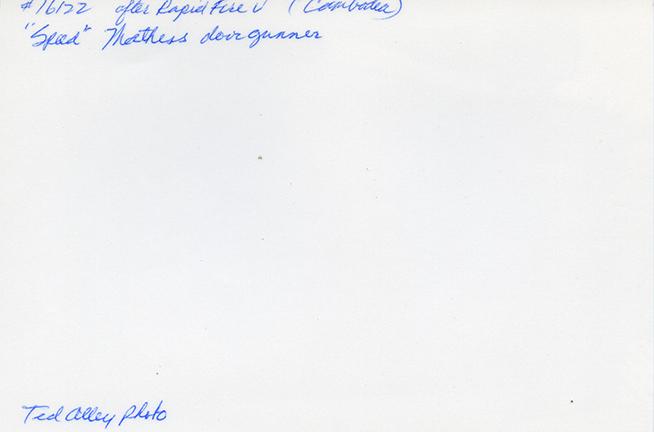 #16122 after Rapid Fire V (Cambodia)
"Spud" Mathess door gunner
Ted Alley photo